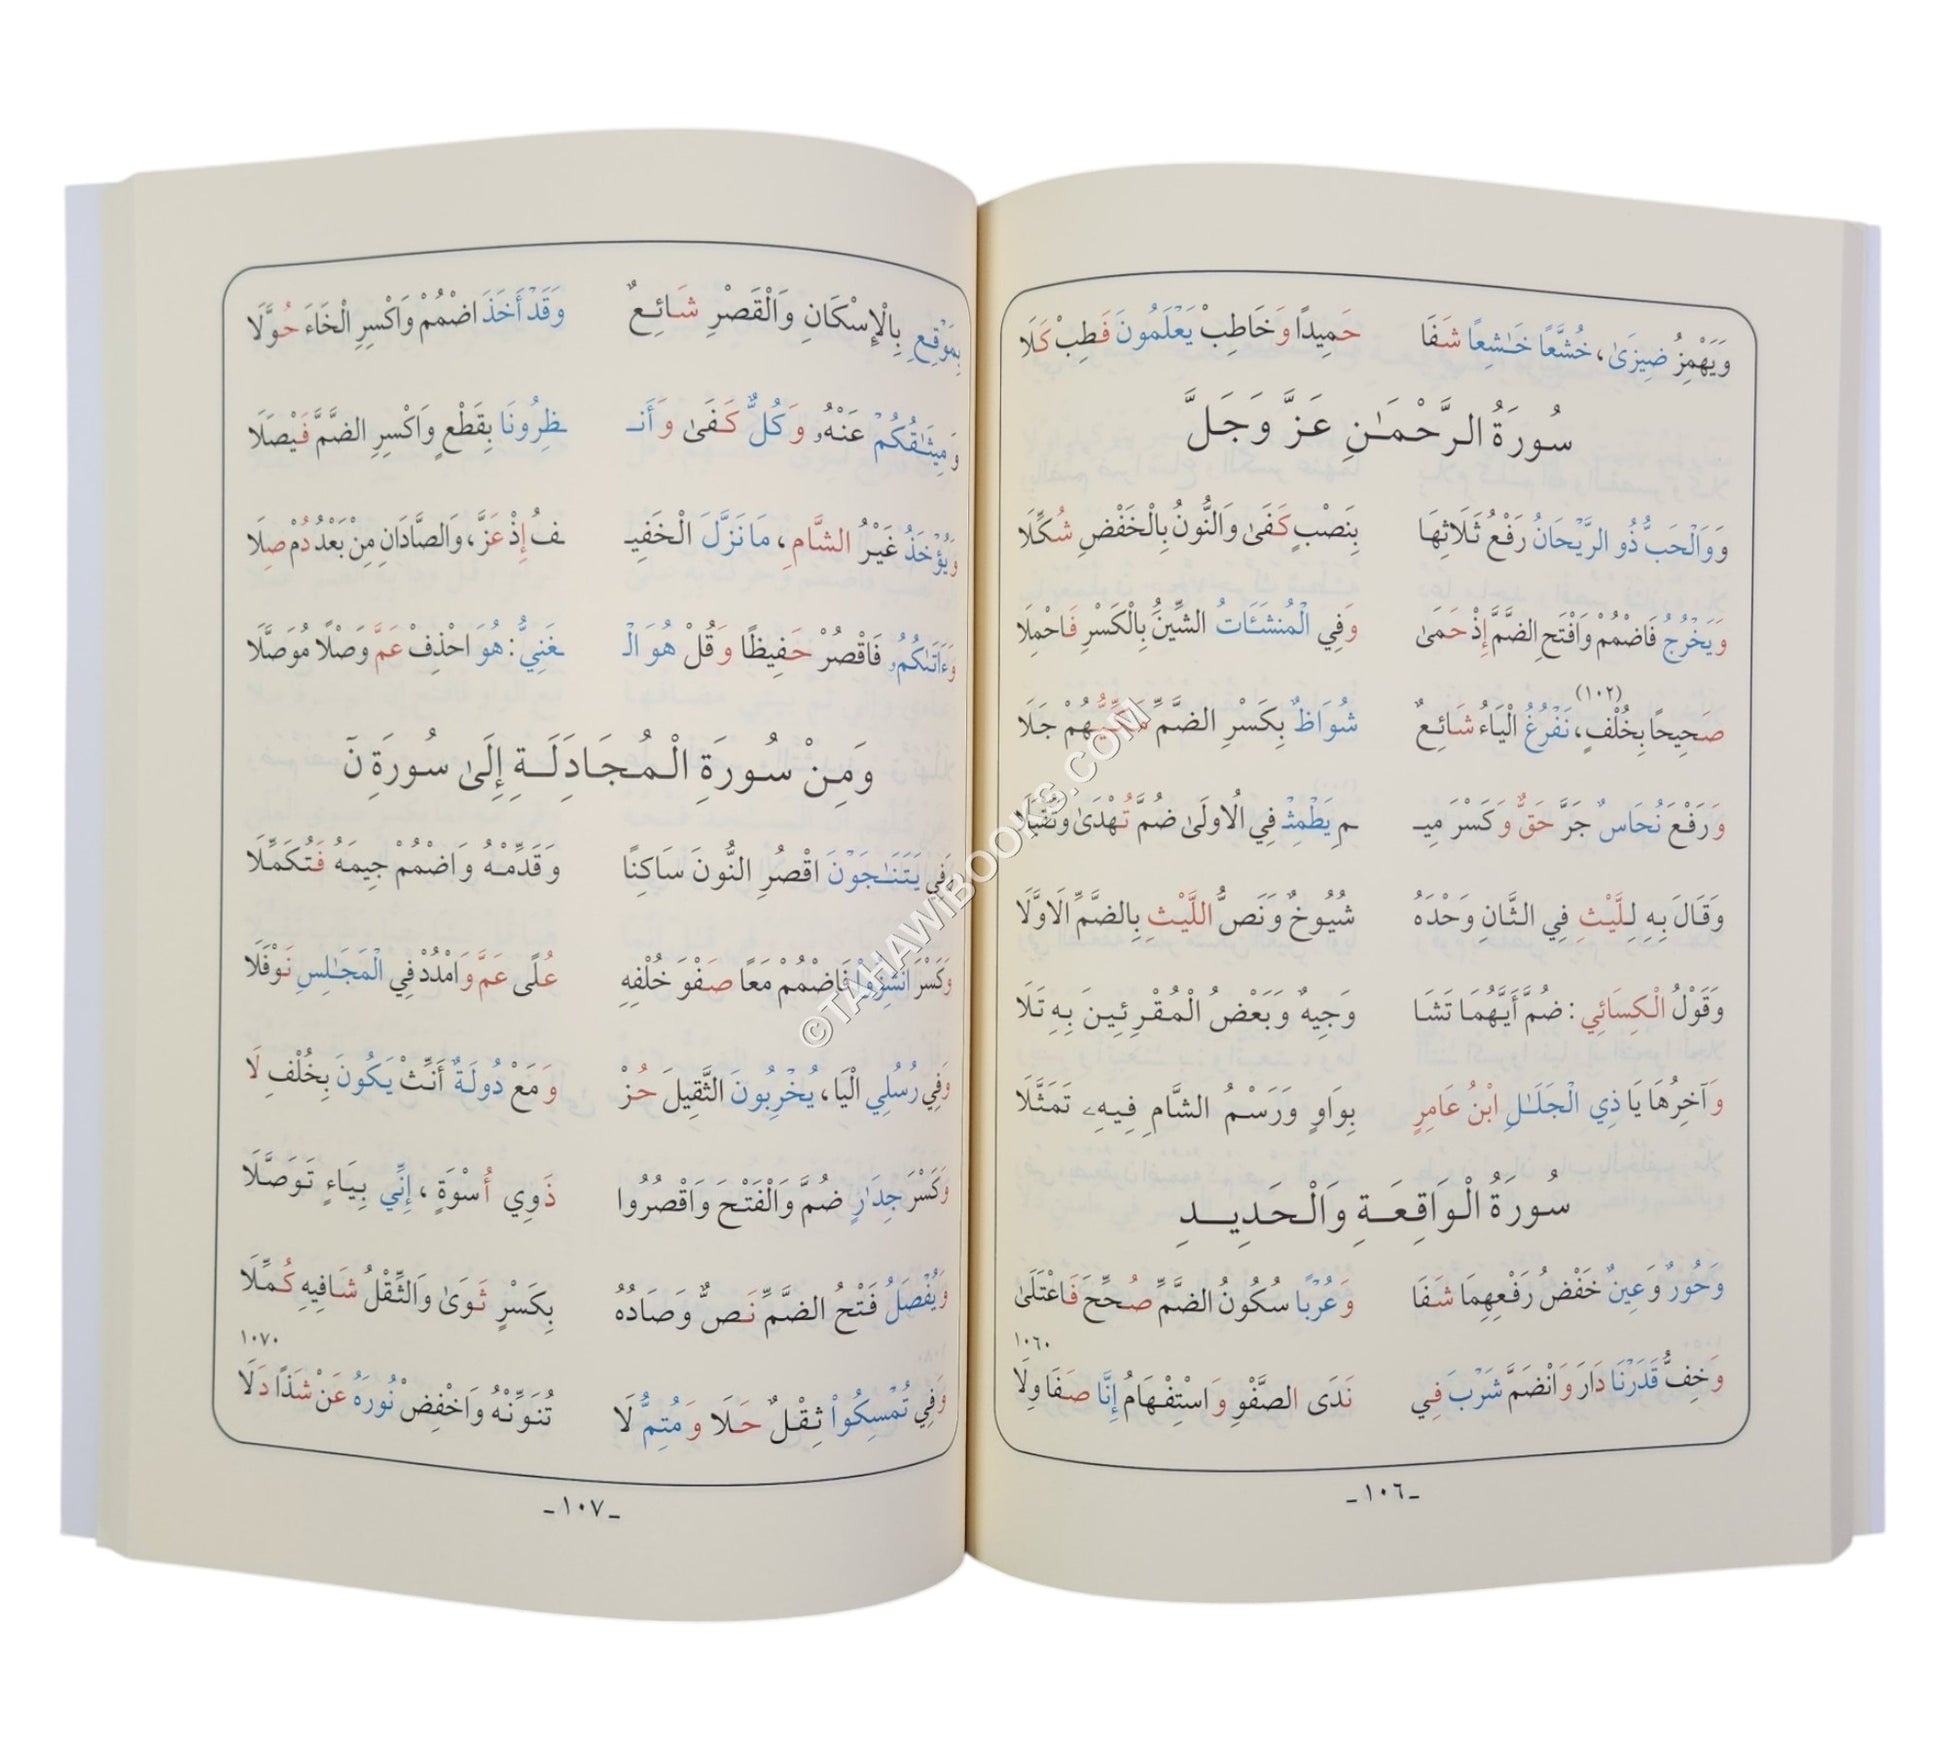 وَيَهْمِزُ ضِيزَىٰ، خُشَّعًا خَٰشِعًا شَفَا حَمِيدًا وَخَاطِبْ يَعْلَمُونَ فَطِبْ كَلَا
سُورَةُ الرَّحْمَٰنِ عَزَّ وَجَلَّ
وَوَالْحَبُّ ذُو الرَّيْحَانُ رَفْعُ ثَلَاثِهَا بِنَصْبٍ كَفَىٰ وَالنُّونُ بِالْخَفْضِ شُكِّلَا
وَيَخْرُجُ فَاضْمُمْ وَافْتَحِ الضَّمَّ إِذْ حَمَىٰ وَفِي الْمُنشَـَٔاتُ الشِّينُ بِالْكَسْرِ فَاحْمِلَا
(١٠٢)
صَحِيحًا بِخُلْفٍ، نَفْرُغُ الْيَاءُ شَائِعٌ شُوَاظٌ بِكَسْرِ الضَّمِّ مَكِّيُّهُمْ جَلَا
وَرَفْعَ نُحَاسٌ جَرَّ حَقٌّ وَكَسْرَ مِيـ ـمِ يَطْمِثْ فِي الُاولَىٰ ضُمَّ تُهْدَىٰ وَتُقْبَلَا
وَقَالَ بِهِ لِلَّيْثِ فِي الثَّانِ وَحْدَهُ شُيُوخٌ وَنَصُّ اللَّيْثِ بِالضَّمِّ الَاوَّلَا
وَقَوْلُ الْكِسَائِي : ضُمَّ أَيَّهُمَا تَشَا وَجِيهٌ وَبَعْضُ الْمُقْرِئِينَ بِهِ تَلَا
وَآخِرُهَا يَا ذِي الْجَلَٰلِ ابْنُ عَامِرٍ بِوَاوٍ وَرَسْمُ الشَّامِ فِيهِۦ تَمَثَّلَا
سُورَةُ الْوَاقِعَةِ وَالْحَدِيدِ
وَحُورٌ وَعِينٌ خَفْضُ رَفْعِهِمَا شَفَا وَعُرْبًا سُكُونُ الضَّمِّ صُحِّحَ فَاعْتَلَىٰ
١٠٦٠
وَخِفُّ قَدَرْنَا دَارَ وَانْضَمَّ شَرْبَ فِي نَدَى الصَّفْوِ وَاسْتِفْهَامُ إِنَّا صَفَا وِلَا
-١٠٦-
بِمَوْقِعِ بِالْإِسْكَانِ وَالْقَصْرِ شَائِعٌ وَقَدْ أَخَذَ اضْمُمْ وَاكْسِرِ الْخَاءَ حُوَّلَا
وَمِيثَٰقُكُمْ عَنْهُۥ وَكُلٌّ كَفَىٰ وَأَنـ ـظِرُونَا بِقَطْعٍ وَاكْسِرِ الضَّمَّ فَيْصَلَا
وَيُؤْخَذُ غَيْرُ الشَّامِ، مَا نَزَّلَ الْخَفِيـ ـفُ إِذْ عَزَّ، وَالصَّادَانِ مِنْ بَعْدُ دُمْ صِلَا
وَءَاتَىٰكُمُۥ فَاقْصُرْ حَفِيظًا وَقُلْ هُوَ الْـ ـغَنِيُّ : هُوَ احْذِفْ عَمَّ وَصْلًا مُوَصَّلَا
وَمِنْ سُورَةِ الْمُجَادَلَةِ إِلَىٰ سُورَةِ نٓ
وَفِي يَتَنَٰجَوْنَ اقْصُرِ النُّونَ سَاكِنًا وَقَدِّمْهُ وَاضْمُمْ جِيمَهُ فَتُكَمِّلَا
وَكَسْرَ انشِزُوا فَاضْمُمْ مَعًا صَفْوَ خُلْفِهِ عُلًى عَمَّ وَامْدُدْ فِي الْمَجَٰلِسِ نَوْفَلَا
وَفِي رُسُلِي الْيَا، يُخْرِبُونَ الثَّقِيلَ حُزْ وَمَعْ دُولَةٌ أَنِّثْ يَكُونَ بِخُلْفِ لَا
وَكَسْرَ جِدَارٍ ضُمَّ وَالْفَتْحَ وَاقْصُرُوا ذَوِي أُسْوَةٍ، إِنِّي بِيَاءٍ تَوَصَّلَا
وَيُفْصَلُ فَتْحُ الضَّمِّ نَصٌّ وَصَادُهُ بِكَسْرٍ ثَوَىٰ وَالثِّقْلُ شَافِيهِ كُمِّلَا
١٠٧٠
وَفِي تُمْسِكُوا ثِقْلٌ حَلَا وَمُتِمُّ لَا تُنَوِّنْهُ وَاخْفِضْ نُورَهُ عَنْ شَذًا دَلَا
-١٠٧-
©TAHAWIBOOKS.COM